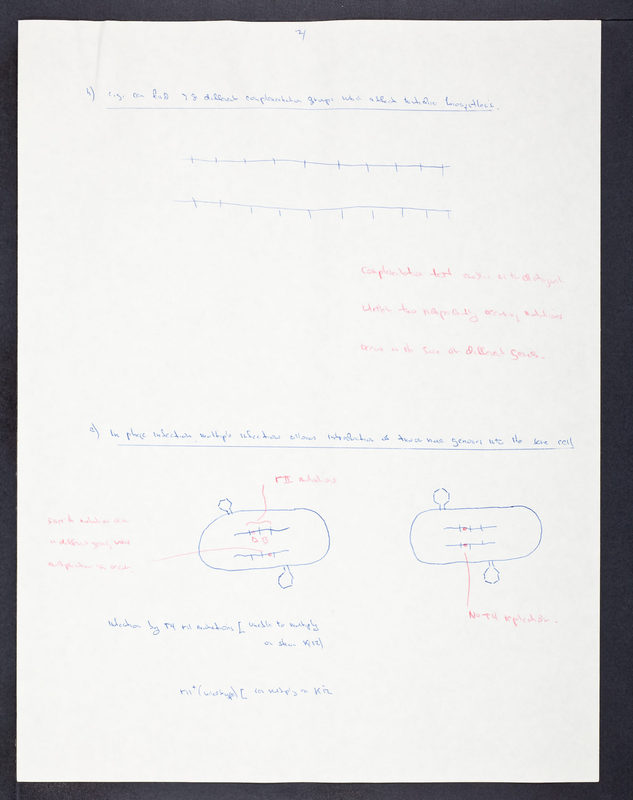 2/
b) e.g. can find 3 different complementation groups which affect biosynthesis.
Complementation test us to distinguish
whether two independently occurring mutations
occur in the same or different genes.
c) In phage infection, multiple infection allows introduction of two or more genomes into the same cell
rII mutations
in different genes,
multiplication can occur.
No T4 replication.
Infection by T4 rII mutations [unable to multiply
on strain K12]
rII+ (wildtype) [can multiply on K12